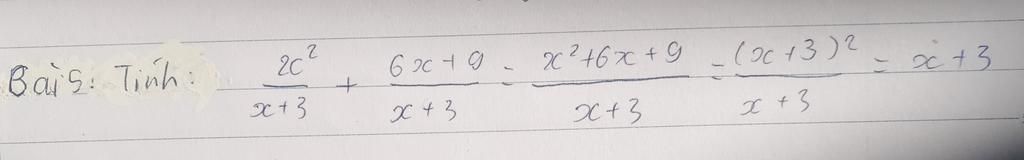 Bài 5: Tính: x²/(x+3) + (6x+9)/(x+3) = (x²+6x+9)/(x+3) = (x+3)²/(x+3) = x+3